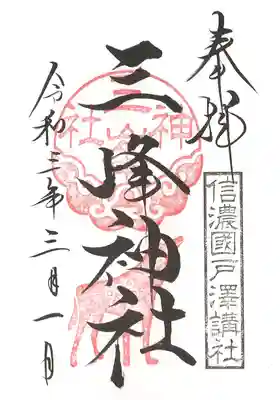 奉拝
信濃國戸澤講社
三峰神社
令和三年三月一日